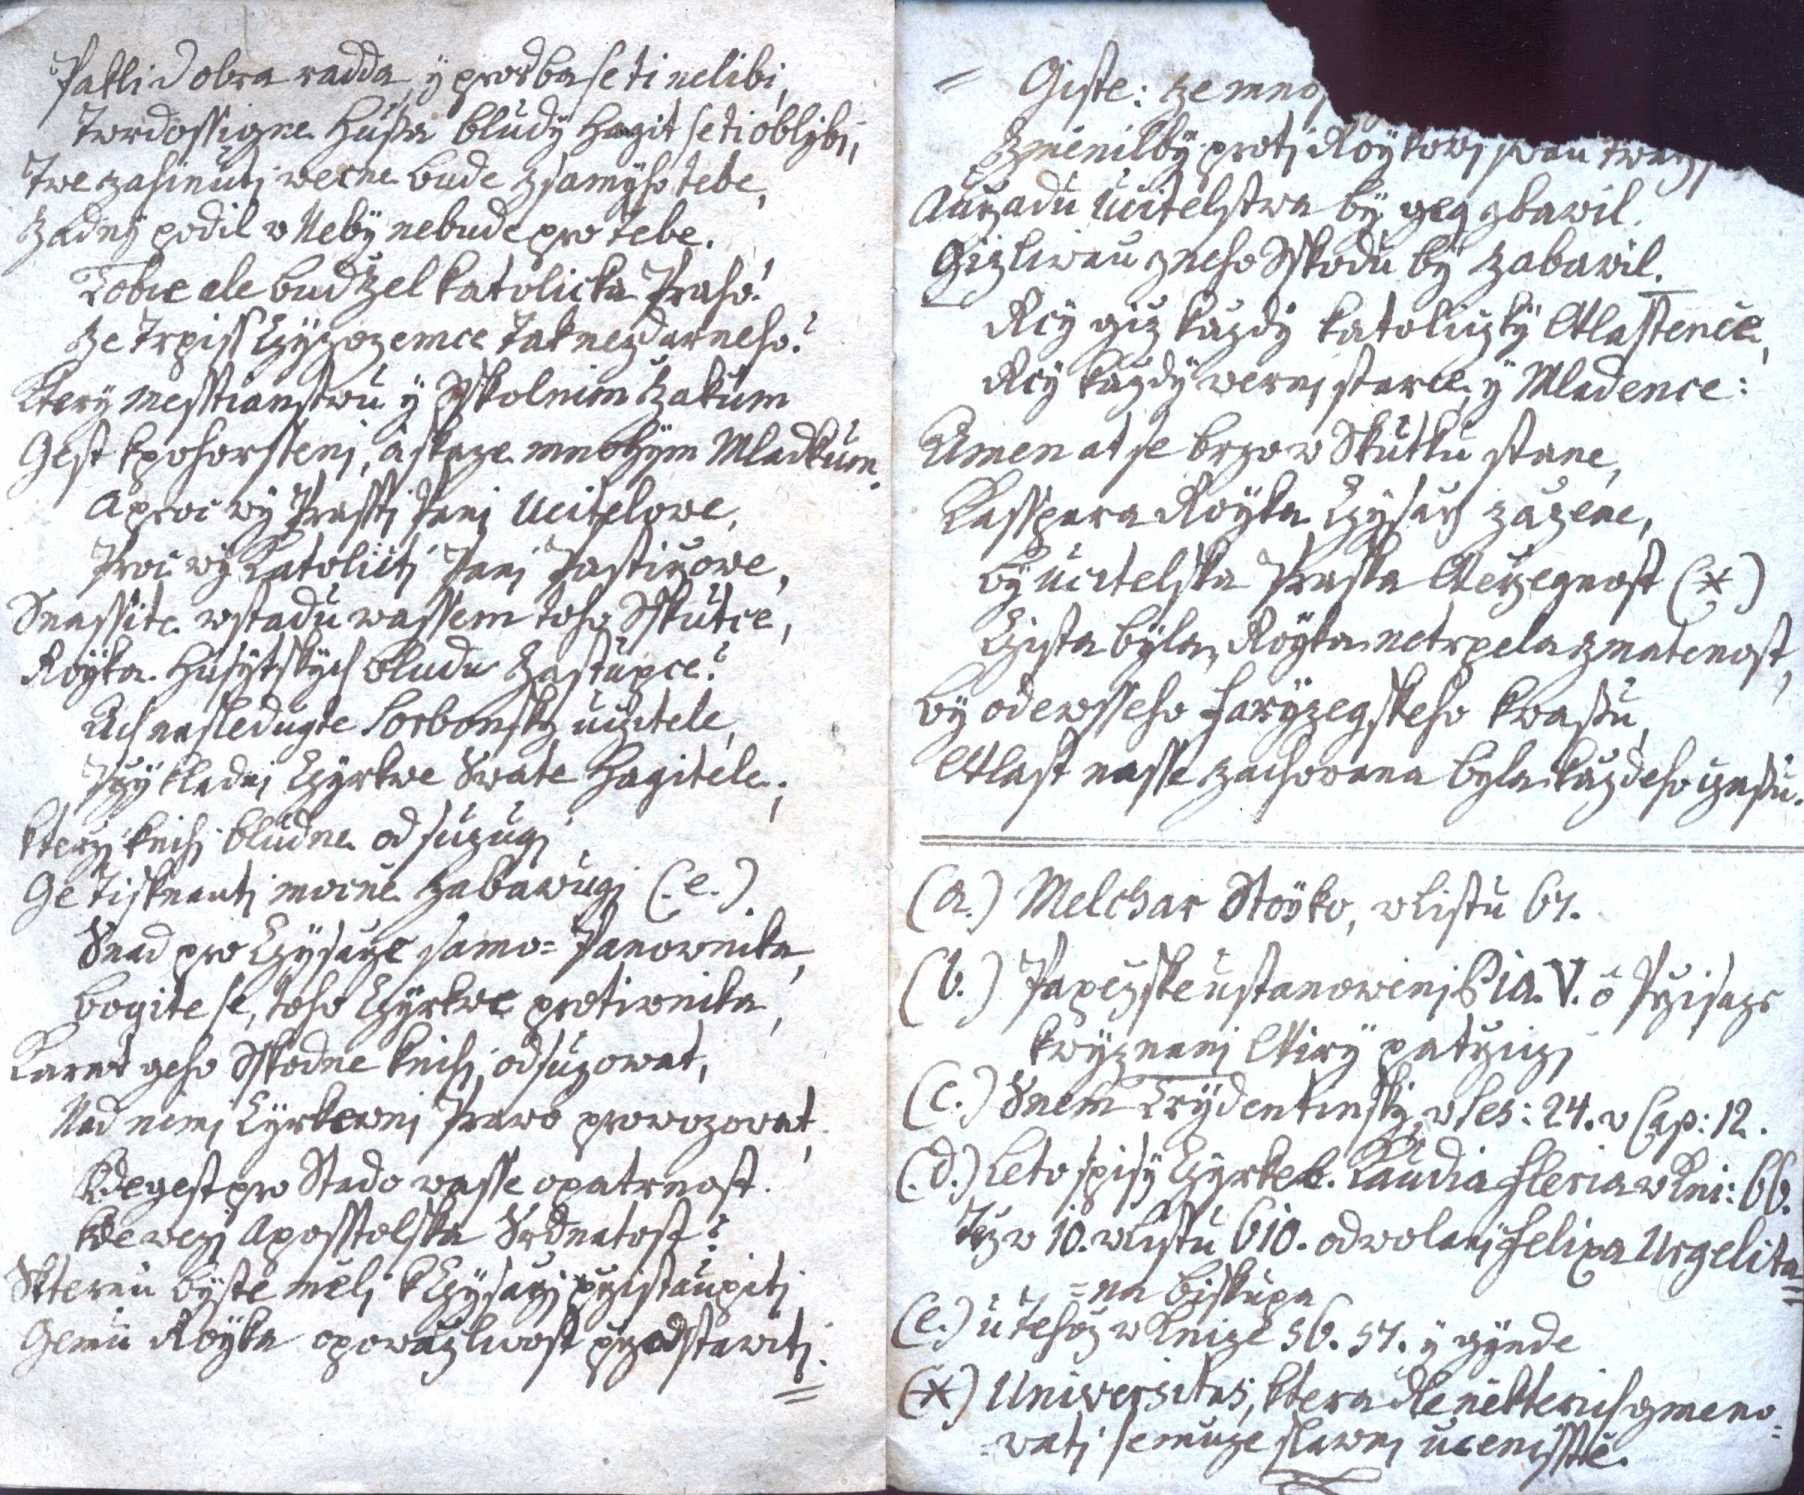 Pakli dobra radda, ÿ prosba se ti nelibi,
Twrdossigne Husa bludÿ hagit se ti oblybi,
Twe zahinuti wecne bude z samÿho tebe,
Zadnÿ podil w Nebÿ nebude pro tebe.
Tobie ale bud zel katolicka Praho!
Ze trpiss Czyzozemce tak nezdarneho?
Kterÿ messtianstwu ÿ Sskolnim Zakum
Gest k pohorsseni, a skaze mnohÿm Mladkum.
A proc wÿ Prassti Pani Ucitelowe,
Proc wÿ Katoliciti Pani Pastirzowe,
Snassite w stadu wassem toho Sskutce,
Roÿka Husÿtskÿch bludu Zastupce?
Ach nasledugte Sorbonskÿ ucitele,
Przÿkladni Czÿrkwe Swate Hagitele;
kterzi knihi bludne odsuzugi
Ge tisknauti mocne zabawugi (.e.)
Snad pro Czÿsarze samo= Panownika,
bogite se, toho Czÿrkwe protiwnika,
Karat geho Sskodne knihi, odsuzowat,
Nad nimi Cyrkewni Prawo prowozowat,
Kde gest pro Stado wasse opatrnost.
kde wezi Aposstolska Srdnatost?
S kterau bÿste meli k Czÿsarzi przistaupiti
Gemu Roÿka opowazliwost przedstawiti.
= Giste: ze mno
Zmenilbÿ proti Roÿkowi swau twarz,
Auradu Ucitelstwa bÿ geg zbawil.
Gizliwau z neho Sskodu bÿ zabawil.
Rcÿ giz kazdÿ katoliczkÿ Wlastence,
Rcÿ kazdÿ werni starce, ÿ Mladence:
Amen at se brzo w Skutku stane,
Kasspara Roÿka Czÿsarz zazene,
bÿ ucitelska Prasska Werzegnost (*)
Czista bÿla, Roÿka netrpela zmatenost,
bÿ od ewsseho farÿzegskeho kwasu,
Wlast nasse zachowana byla kazdeho czasu.
(a.) Melchar Stoÿko, w Listu 67.
(b.) Papezske ustanoweni Pia. V. o Przisaze
k wÿznani Wirÿ patrzici
(c.) Snem Trÿdentinskÿ, w Ses: 24. w Cap: 12.
(.d.) Letospisÿ Czÿrkeb. Klaudia fleria w Kni: 66.
Tez w 10. w Listu 610. odwolani felixa Urgelita=
=na biskupa
(e.) u tehoz w Knize 56. 57. ÿ gÿnde
(*) Universitas, ktera dle nekterich gmeno=
=wati se muze slawni ucenisste.